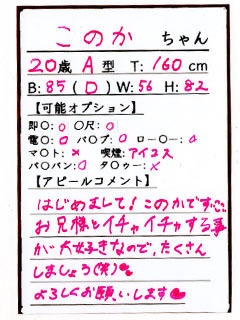 このか ちゃん
20歳 A型 T:160cm
B:85(D) W:56 H:82
【可能オプション】
即〇:○ 〇尺:○
電〇:○ バ〇ブ:○ ロー〇ー:○
マ〇ト:× 喫煙:アイコス
パ〇パン:○ タ〇ゥー:×
【アピールコメント】
はじめまして!このかです
お兄様とイチャイチャする事
が大好きなので、たくさん
しましょう(笑)
よろしくお願いします